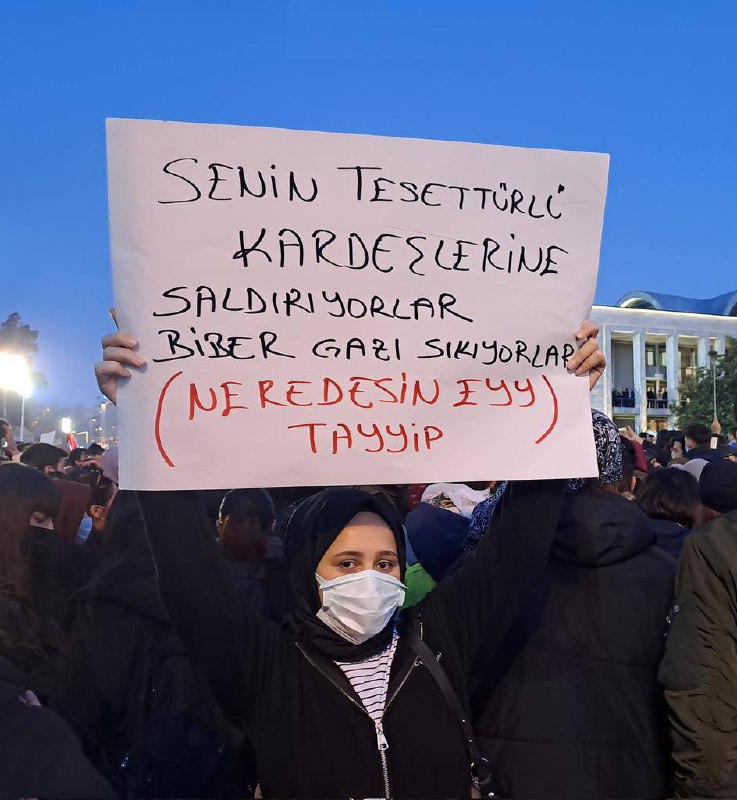 SENİN TESETTÜRLÜ
KARDEŞLERİNE
SALDIRIYORLAR
BİBER GAZI SIKIYORLAR
(NEREDESİN EYY)
TAYYİP